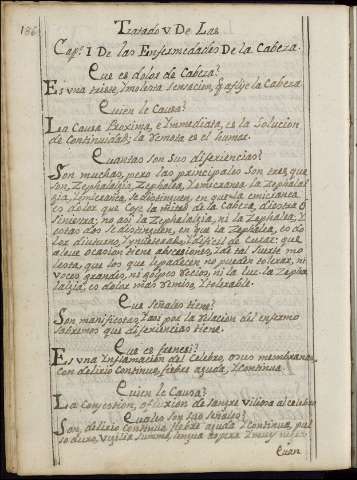 186
Tratado V De Las
Cap.º I De las Enfermedades De la Cabeza.
Que es dolor de Cabeza?
Es una triste, i molesta sensacion, q̃ aflije la Cabeza.
Quien le Causa?
La Causa Proxima, e Ynmediata, es la Solucion
de Continuidad; la remota es el humor.
Cuantas son sus diferiencias?
Son muchas, pero las principales son tres, que
son, Zephalalgia, Zephalea, Yemicranea. la Zephalal
gia, i emicranea se distinguen, en que la emicranea
es dolor que Con la mitad de la Cabeza, diestra o
siniestra; no asi la Zephalalgia, ni la Zephalea; Y
estas dos se distinguen, en que la Zephalea, es do
lor diuturno, Ynveterado, i dificil de Curar: que
aleve ocasion tiene absesiones, i de tal suerte mo
lesta, que los que lo padecen no pueden tolerar, ni
voces grandes, ni golpes recios, ni la luz. la Zepha
lalgia, es dolor mas remiso, Ytolerable.
Que Señales tiene?
Son manifiestas, Yaas por la relacion del enfermo
Sabremos que diferiencias tiene.
Que es frenesi?
Es una Inflamacion del Celebro, o sus membranas,
Con delirio Continuo, fiebre aguda, Ycontinua.
Quien le Causa?
La Congestion, o fluxion de Sangre Viliosa al celebro
Cuales son sus señales?
Son, delirio Continuo, fiebre aguda, Ycontinua, pul
so duro, vigilia Summa, lengua aspera, Ymuy
Cuan